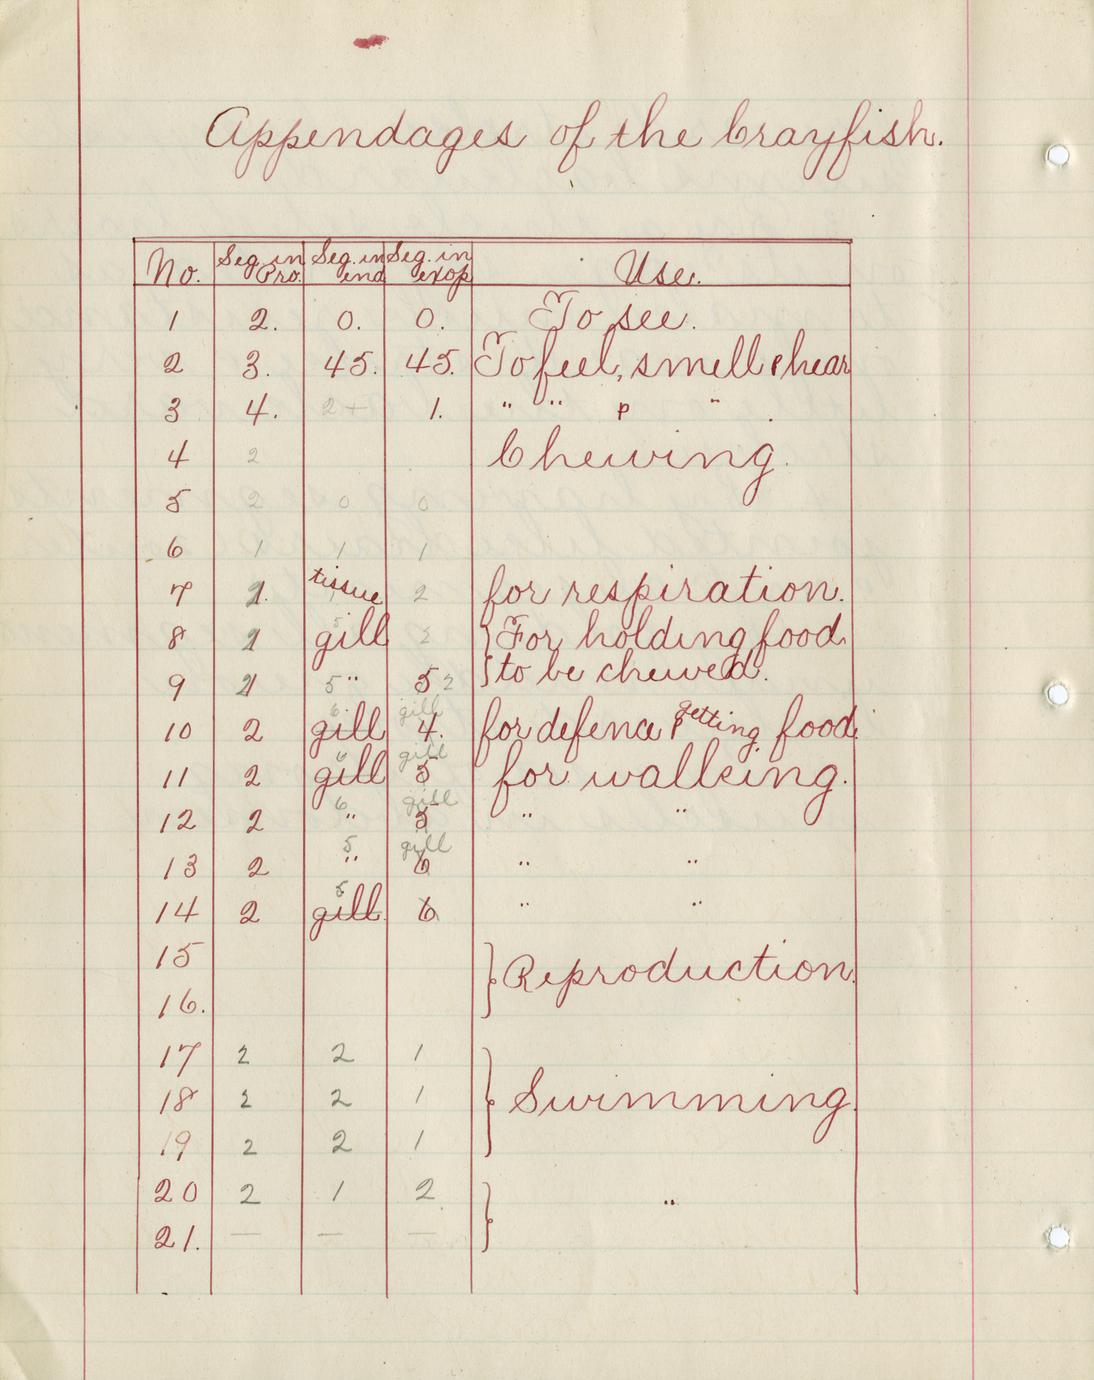 Appendages of the Crayfish.
No. Seg. in Pro. Seg. in end Seg. in exop Use.
1 2. 0. 0. To see.
2 3. 45. 45. To feel, smell & hear
3 4. 2+ 1. " " & "
4 2 Chewing.
5 2 0 0
6 1 1 1
7 2. tissue 2 for respiration.
8 2 5 gill 2 } For holding food
9 2 5 " 5 2 to be chewed.
10 2 6 gill gill 4. for defence & getting food
11 2 6 gill gill 5 for walking.
12 2 6 " gill 5 " "
13 2 5 " gill 6 " "
14 2 5 gill 6 " "
15 } Reproduction.
16.
17 2 2 1
18 2 2 1 } Swimming.
19 2 2 1
20 2 1 2 } "
21. — — —